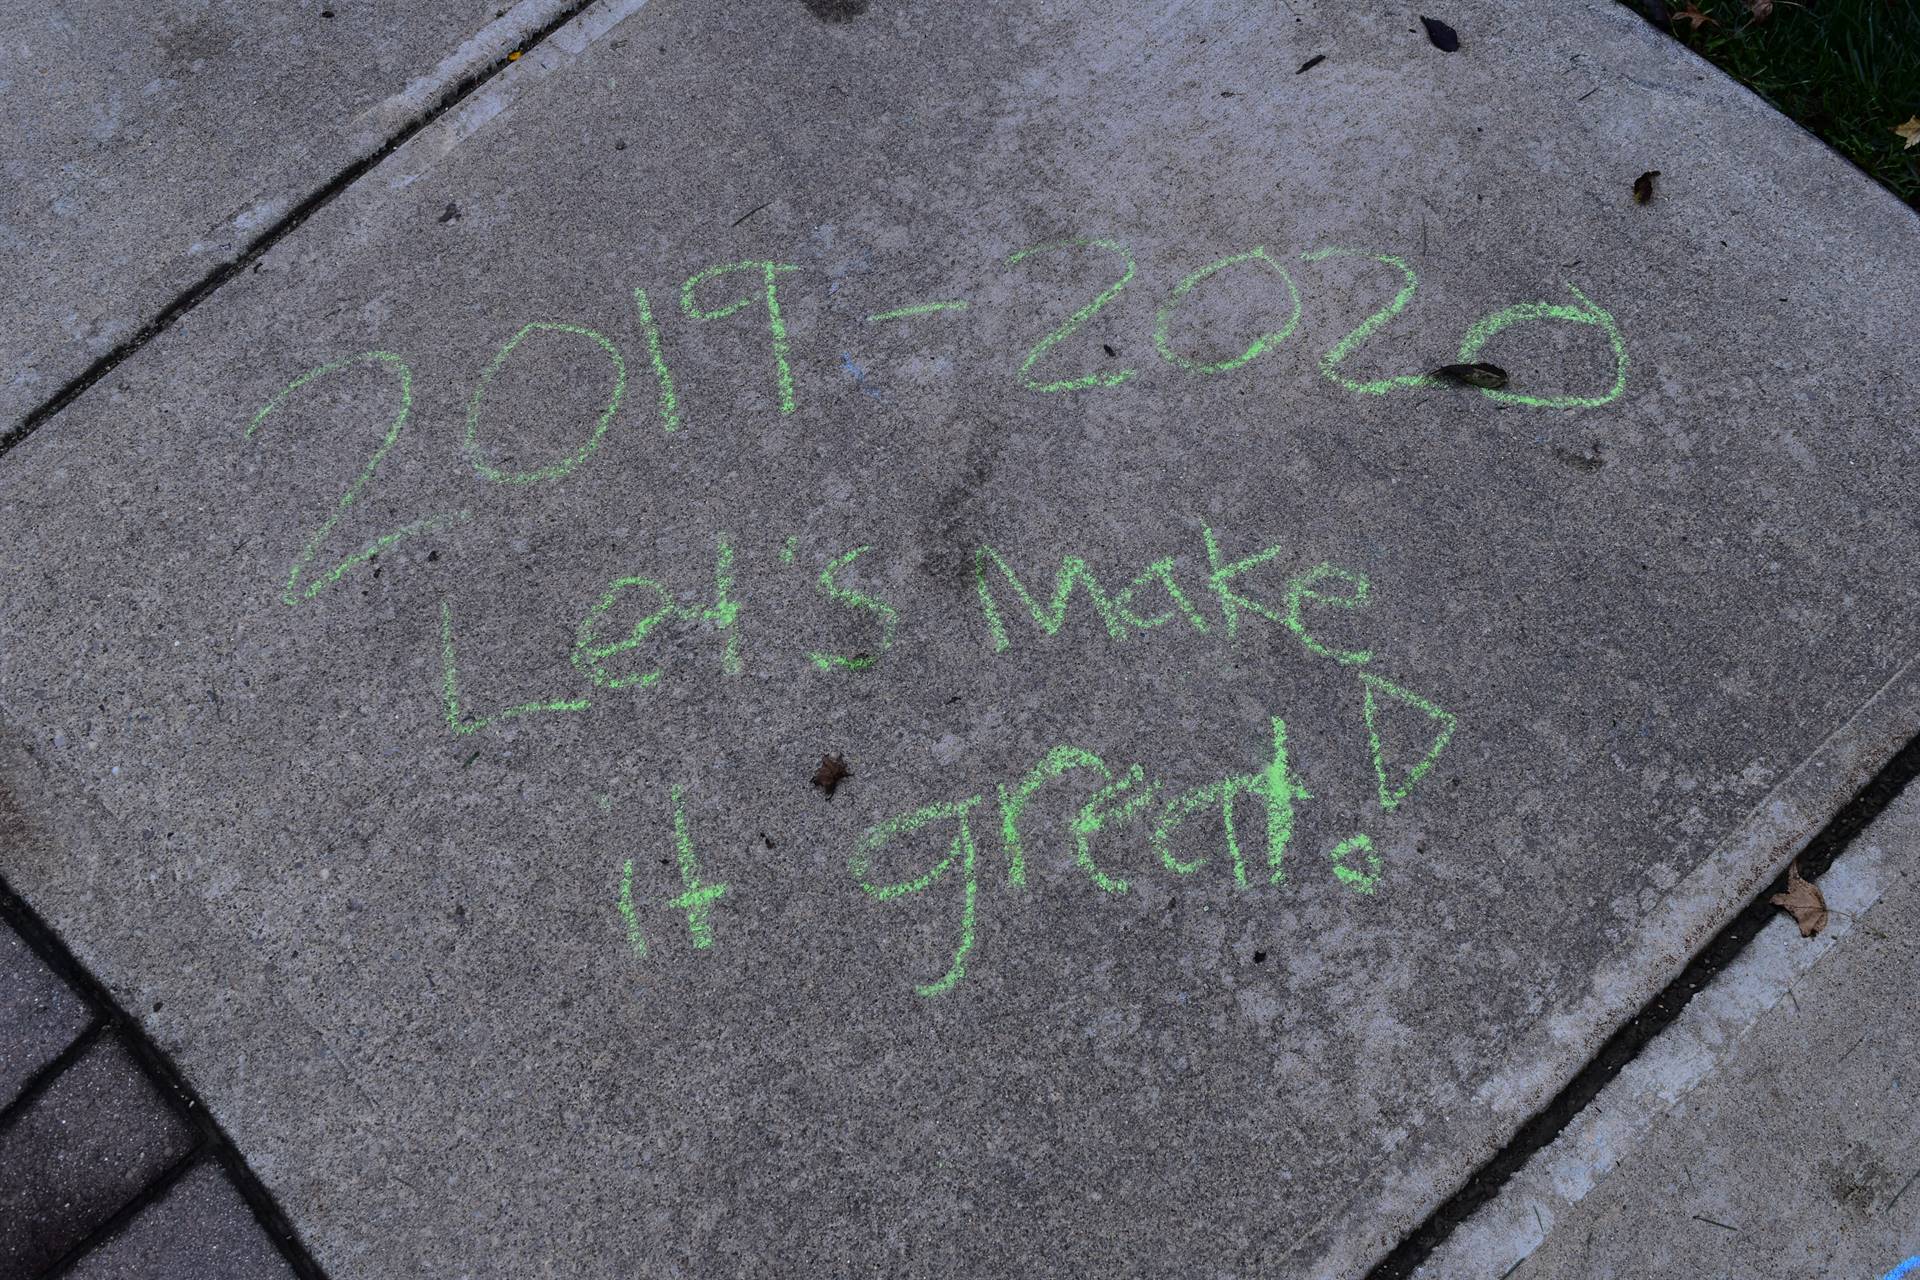 2019-2020
Let's Make
it great!